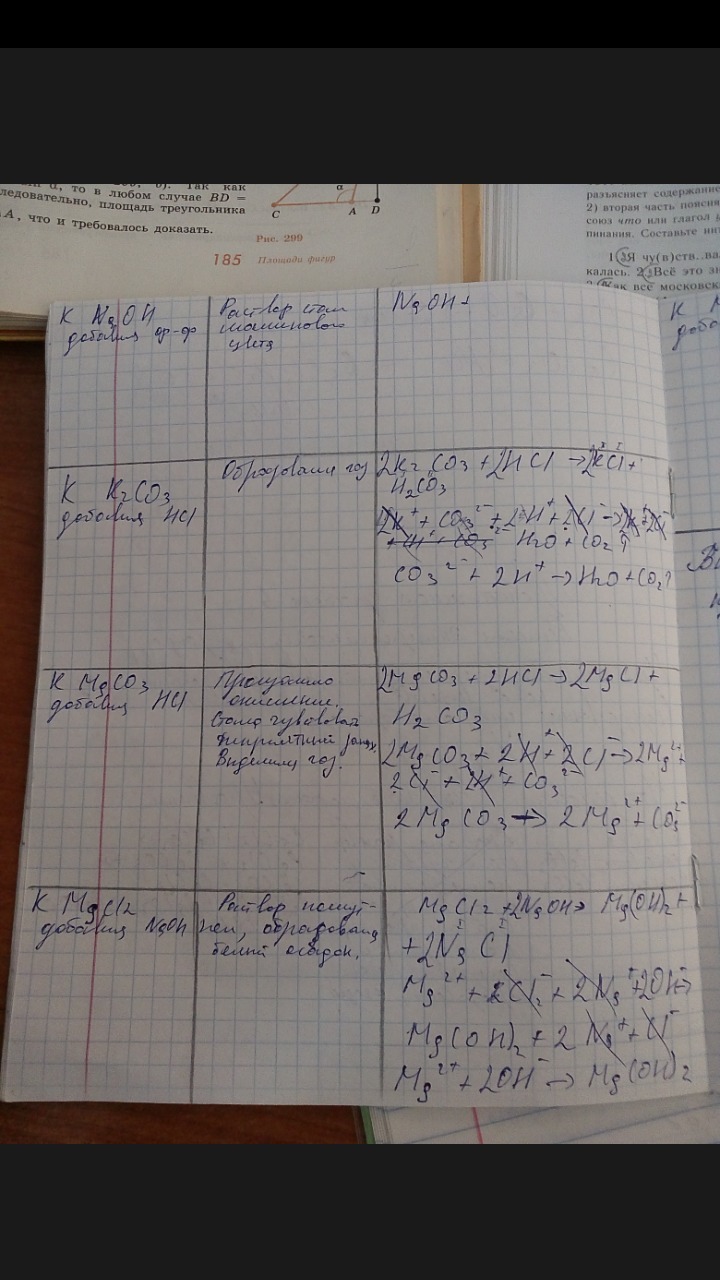 α, то в любом случае BD =
ледовательно, площадь треугольника
A, что и требовалось доказать.
α
C A D
Рис. 299
185 Площади фигур
разъясняет содержание
2) вторая часть поясня
союз что или глагол
пинания. Составьте
1 Я чу(в)ств..вал
калась. 2 Всё это
как всё московск
К NaOH
добавил ор-ор
Раствор стал
малинового
цвета
NaOH +
К K2CO3
добавил HCl
Образовался газ
2K2CO3 + 2HCl → 2KCl +
H2CO3
2K⁺ + CO3²⁻ + 2H⁺ + 2Cl⁻ → 2K⁺ + 2Cl⁻
H2O + CO2↑
CO3²⁻ + 2H⁺ → H2O + CO2↑
К MgCO3
добавил HCl
неприятный запах.
Выделился газ.
2MgCO3 + 2HCl → 2MgCl +
H2CO3
2MgCO3 + 2H⁺ + 2Cl⁻ → 2Mg²⁺ +
2Cl⁻ + 2H⁺ + CO3²⁻
2MgCO3 → 2Mg²⁺ + CO3²⁻
К MgCl2
добавил NaOH
Раствор помут-
нел, образовался
белый осадок.
MgCl2 + 2NaOH → Mg(OH)2 +
+ 2NaCl
Mg²⁺ + 2Cl2⁻ + 2Na⁺ + 2OH⁻ →
Mg(OH)2 + 2Na⁺ + Cl⁻
Mg²⁺ + 2OH⁻ → Mg(OH)2